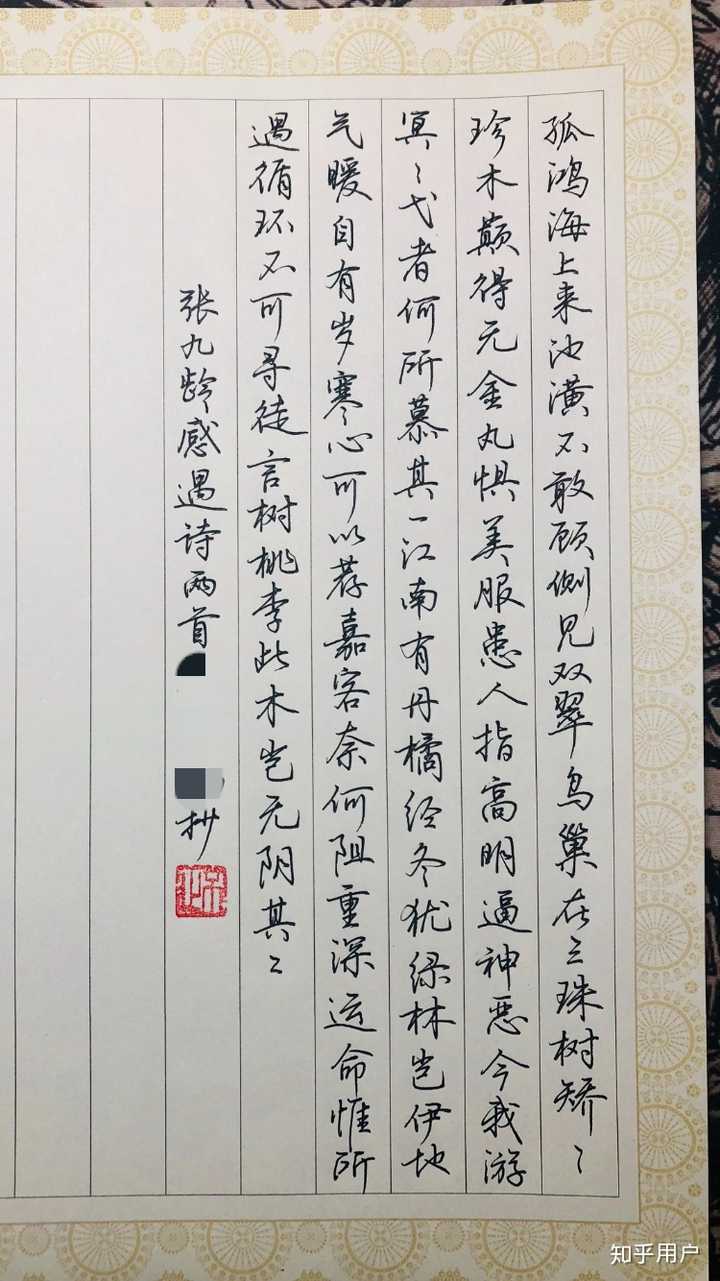 孤鸿海上来池潢不敢顾侧见双翠鸟巢在三珠树矫〻
珍木巅得无金丸惧美服患人指高明逼神恶今我游
冥〻弋者何所慕其一江南有丹橘经冬犹绿林岂伊地
气暖自有岁寒心可以荐嘉客奈何阻重深运命惟所
遇循环不可寻徒言树桃李此木岂无阴其二
张九龄感遇诗两首
抄
知乎用户